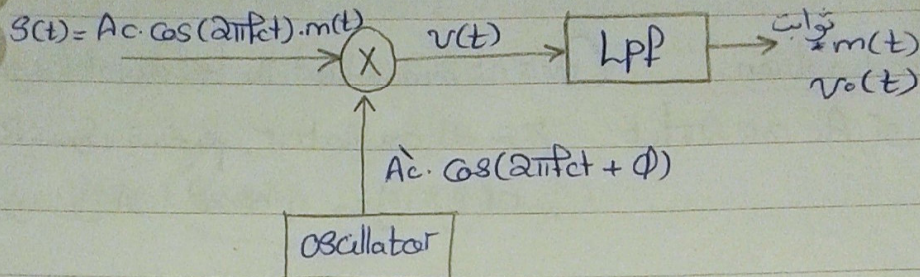 S(t) = Ac. Cos(2πfct).m(t)
X
v(t)
Lpf
ثوابت
* m(t)
vo(t)
Àc. Cos(2πfct + Φ)
oscillator